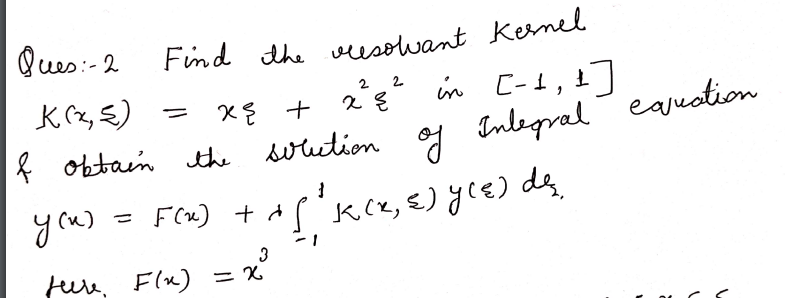 Ques:- 2 Find the resolvant Kernel
K(x, ξ) = xξ + x²ξ² in [-1, 1]
& obtain the solution of Integral equation
y(x) = F(x) + λ∫₋₁¹ K(x, ξ) y(ξ) dξ.
here, F(x) = x³